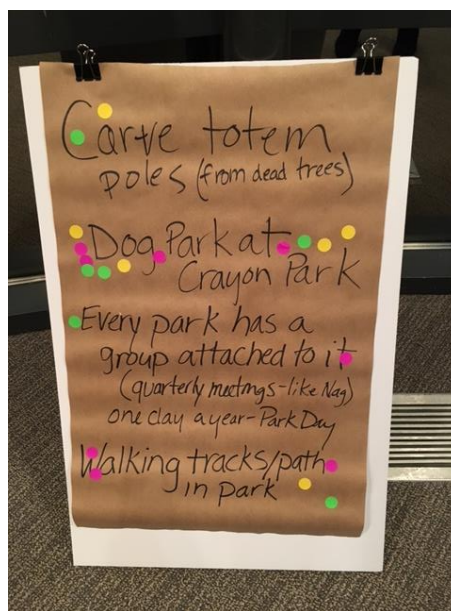 Carve totem
poles (from dead trees)
Dog Park at
Crayon Park
Every park has a
group attached to it
(quarterly meetings-like Nag)
one day a year-Park Day
Walking tracks/path
in park